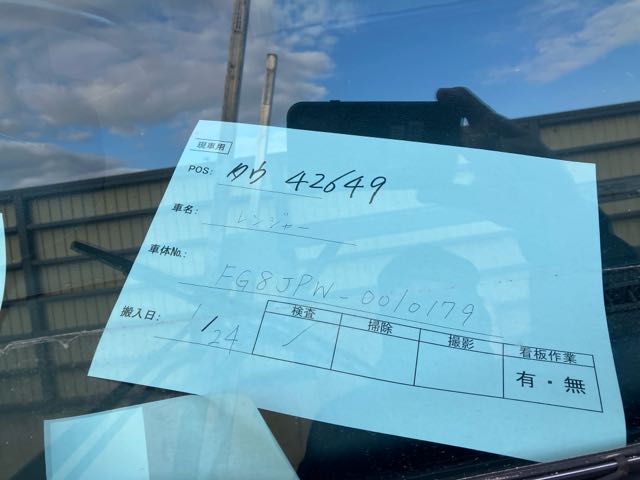 現車用
POS: カウ 42649
車名: レンジャー
車体No.: FG8JPW-0010179
搬入日: 1/24
検査 掃除 撮影 看板作業
/ 有・無